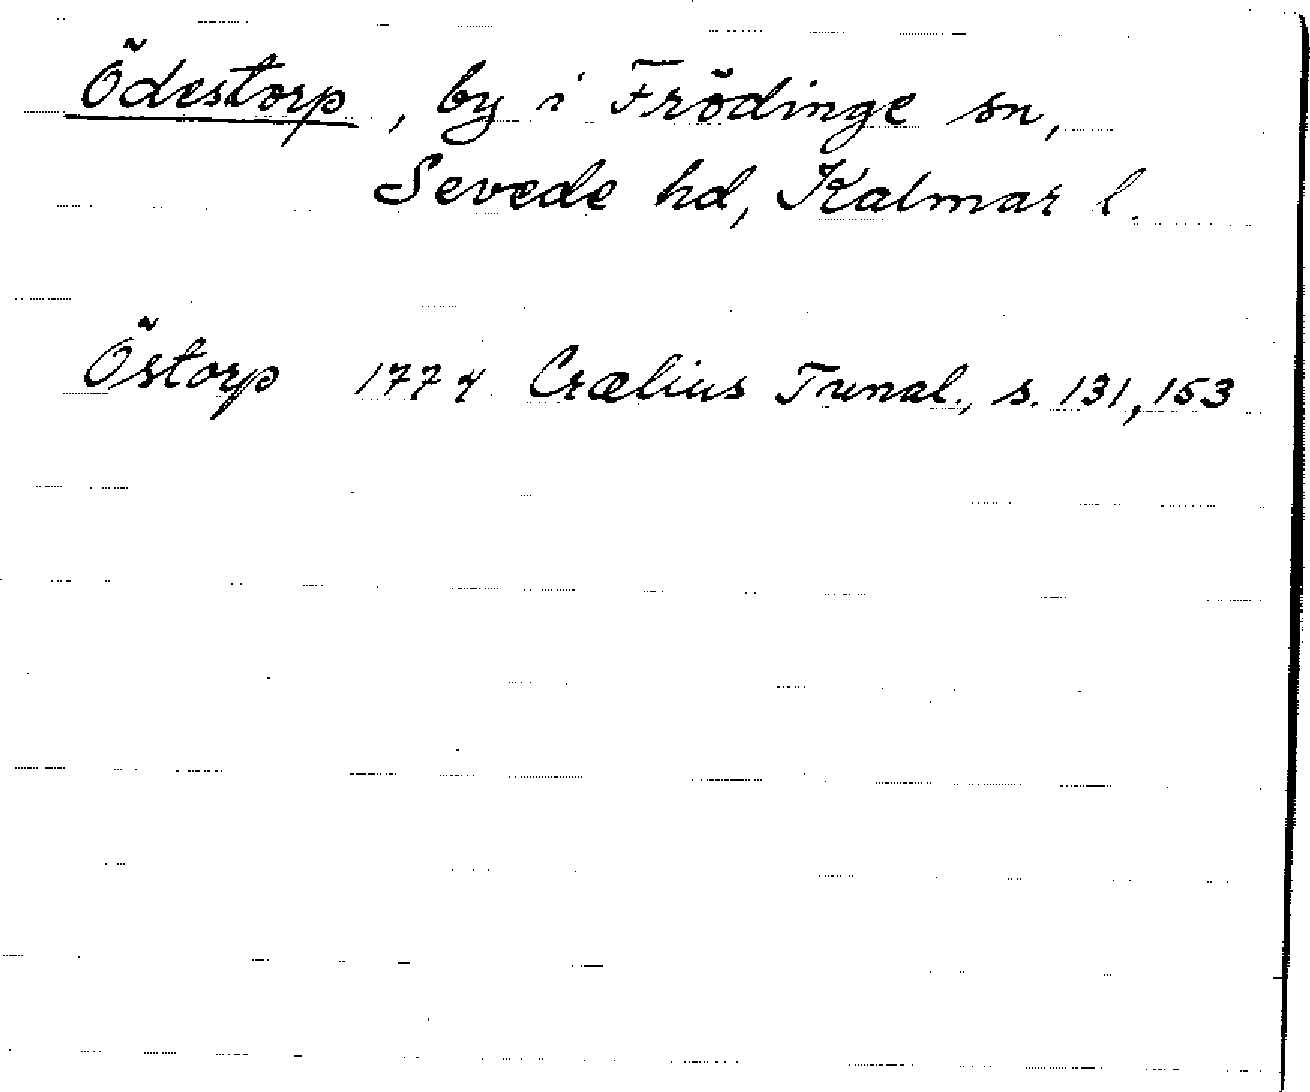 Ödestorp, by i Frödinge sn,
Sevede hd, Kalmar l.
Östorp 1774 Crælius Tunal., s. 131, 153